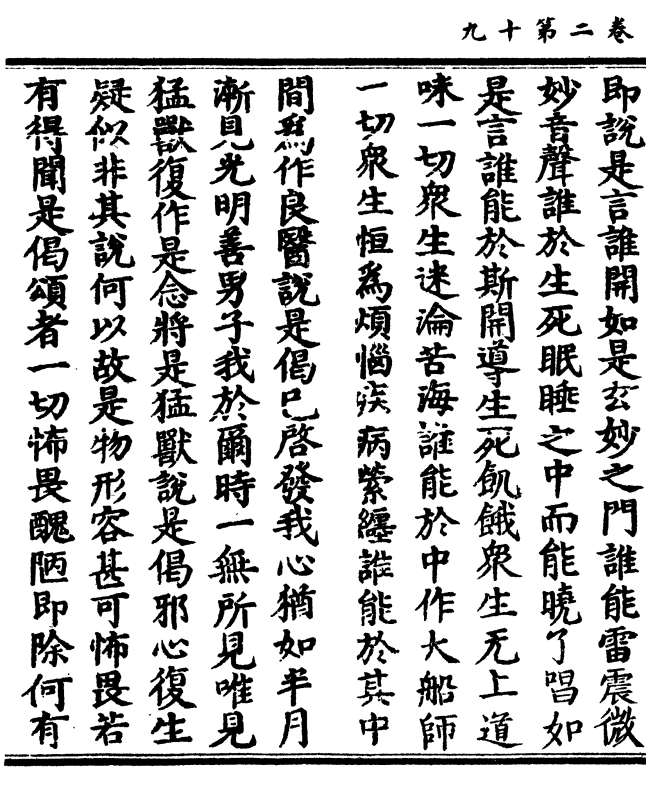 卷二第十九
即說是言誰開如是玄妙之門誰能雷震微
妙音聲誰於生死眠睡之中而能曉了唱如
是言誰能於斯開導生死飢餓衆生无上道
味一切衆生迷淪苦海誰能於中作大船師
一切衆生恒爲煩惱疾病縈纏誰能於其中
間爲作良醫說是偈已啓發我心猶如半月
漸見光明善男子我於爾時一無所見唯見
猛獸復作是念將是猛獸說是偈邪心復生
疑似非其說何以故是物形容甚可怖畏若
有得聞是偈頌者一切怖畏醜陋即除何有